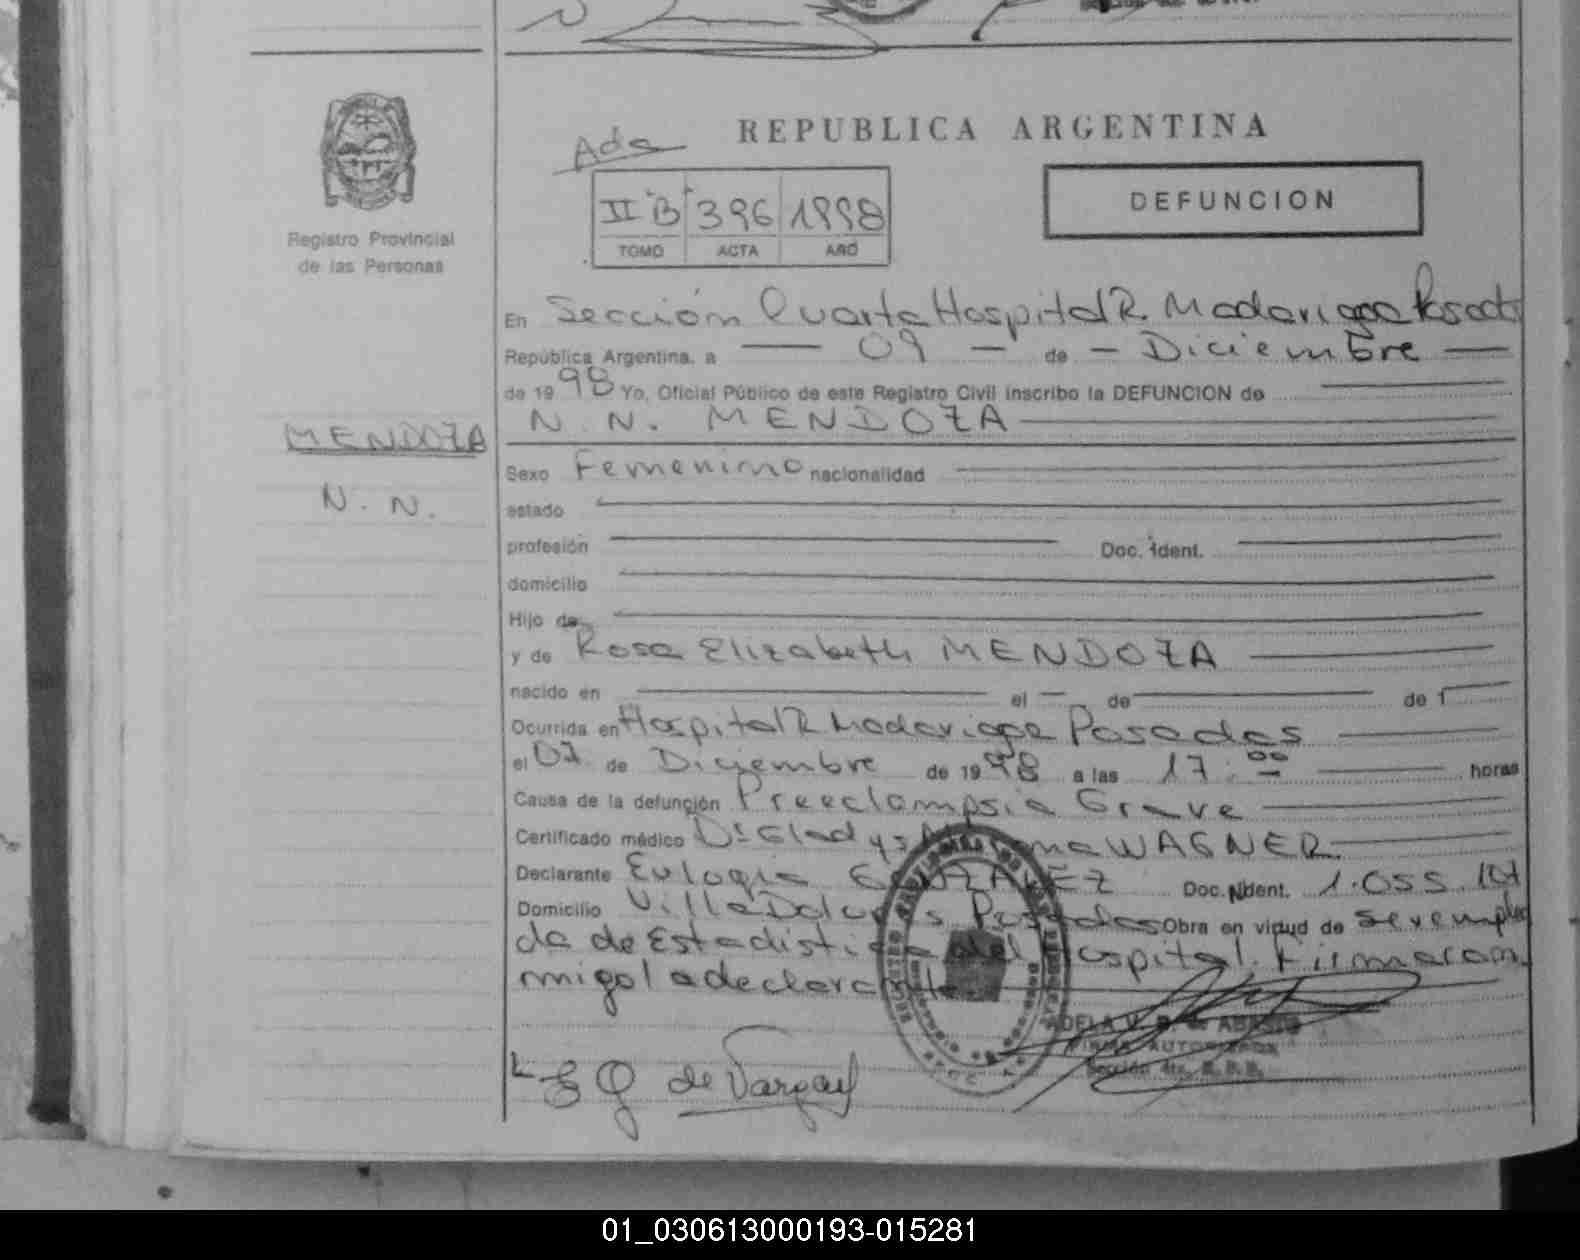 REPUBLICA ARGENTINA
Ada
II "B" 396 1998
TOMO ACTA AÑO
DEFUNCION
Registro Provincial
de las Personas
En Sección Cuarta Hospital R. Madariaga Posadas
República Argentina, a 09 de Diciembre
de 19 98 Yo, Oficial Público de este Registro Civil inscribo la DEFUNCION de
N. N. MENDOZA
MENDOZA
N. N.
Sexo Femenino nacionalidad
estado
profesión Doc. Ident.
domicilio
Hijo de
y de Rosa Elizabeth MENDOZA
nacido en el de de 1
Ocurrida en Hospital R Madariaga Posadas
el 07 de Diciembre de 19 98 a las 17:00 horas
Causa de la defunción Preeclampsia Grave
Certificado médico Dra Gladys WAGNER
Declarante Eulogia GONZALEZ Doc. Ident. 1.055.
Domicilio Villa Dolores Posadas Obra en virtud de ser emplea
da de Estadistica del Hospital. Firmaron
migo la declarante
ADELA V. B. de
FIRMA AUTORIZADA
Sección 4ta. R. P. P.
E G de Vargas
01_030613000193-015281